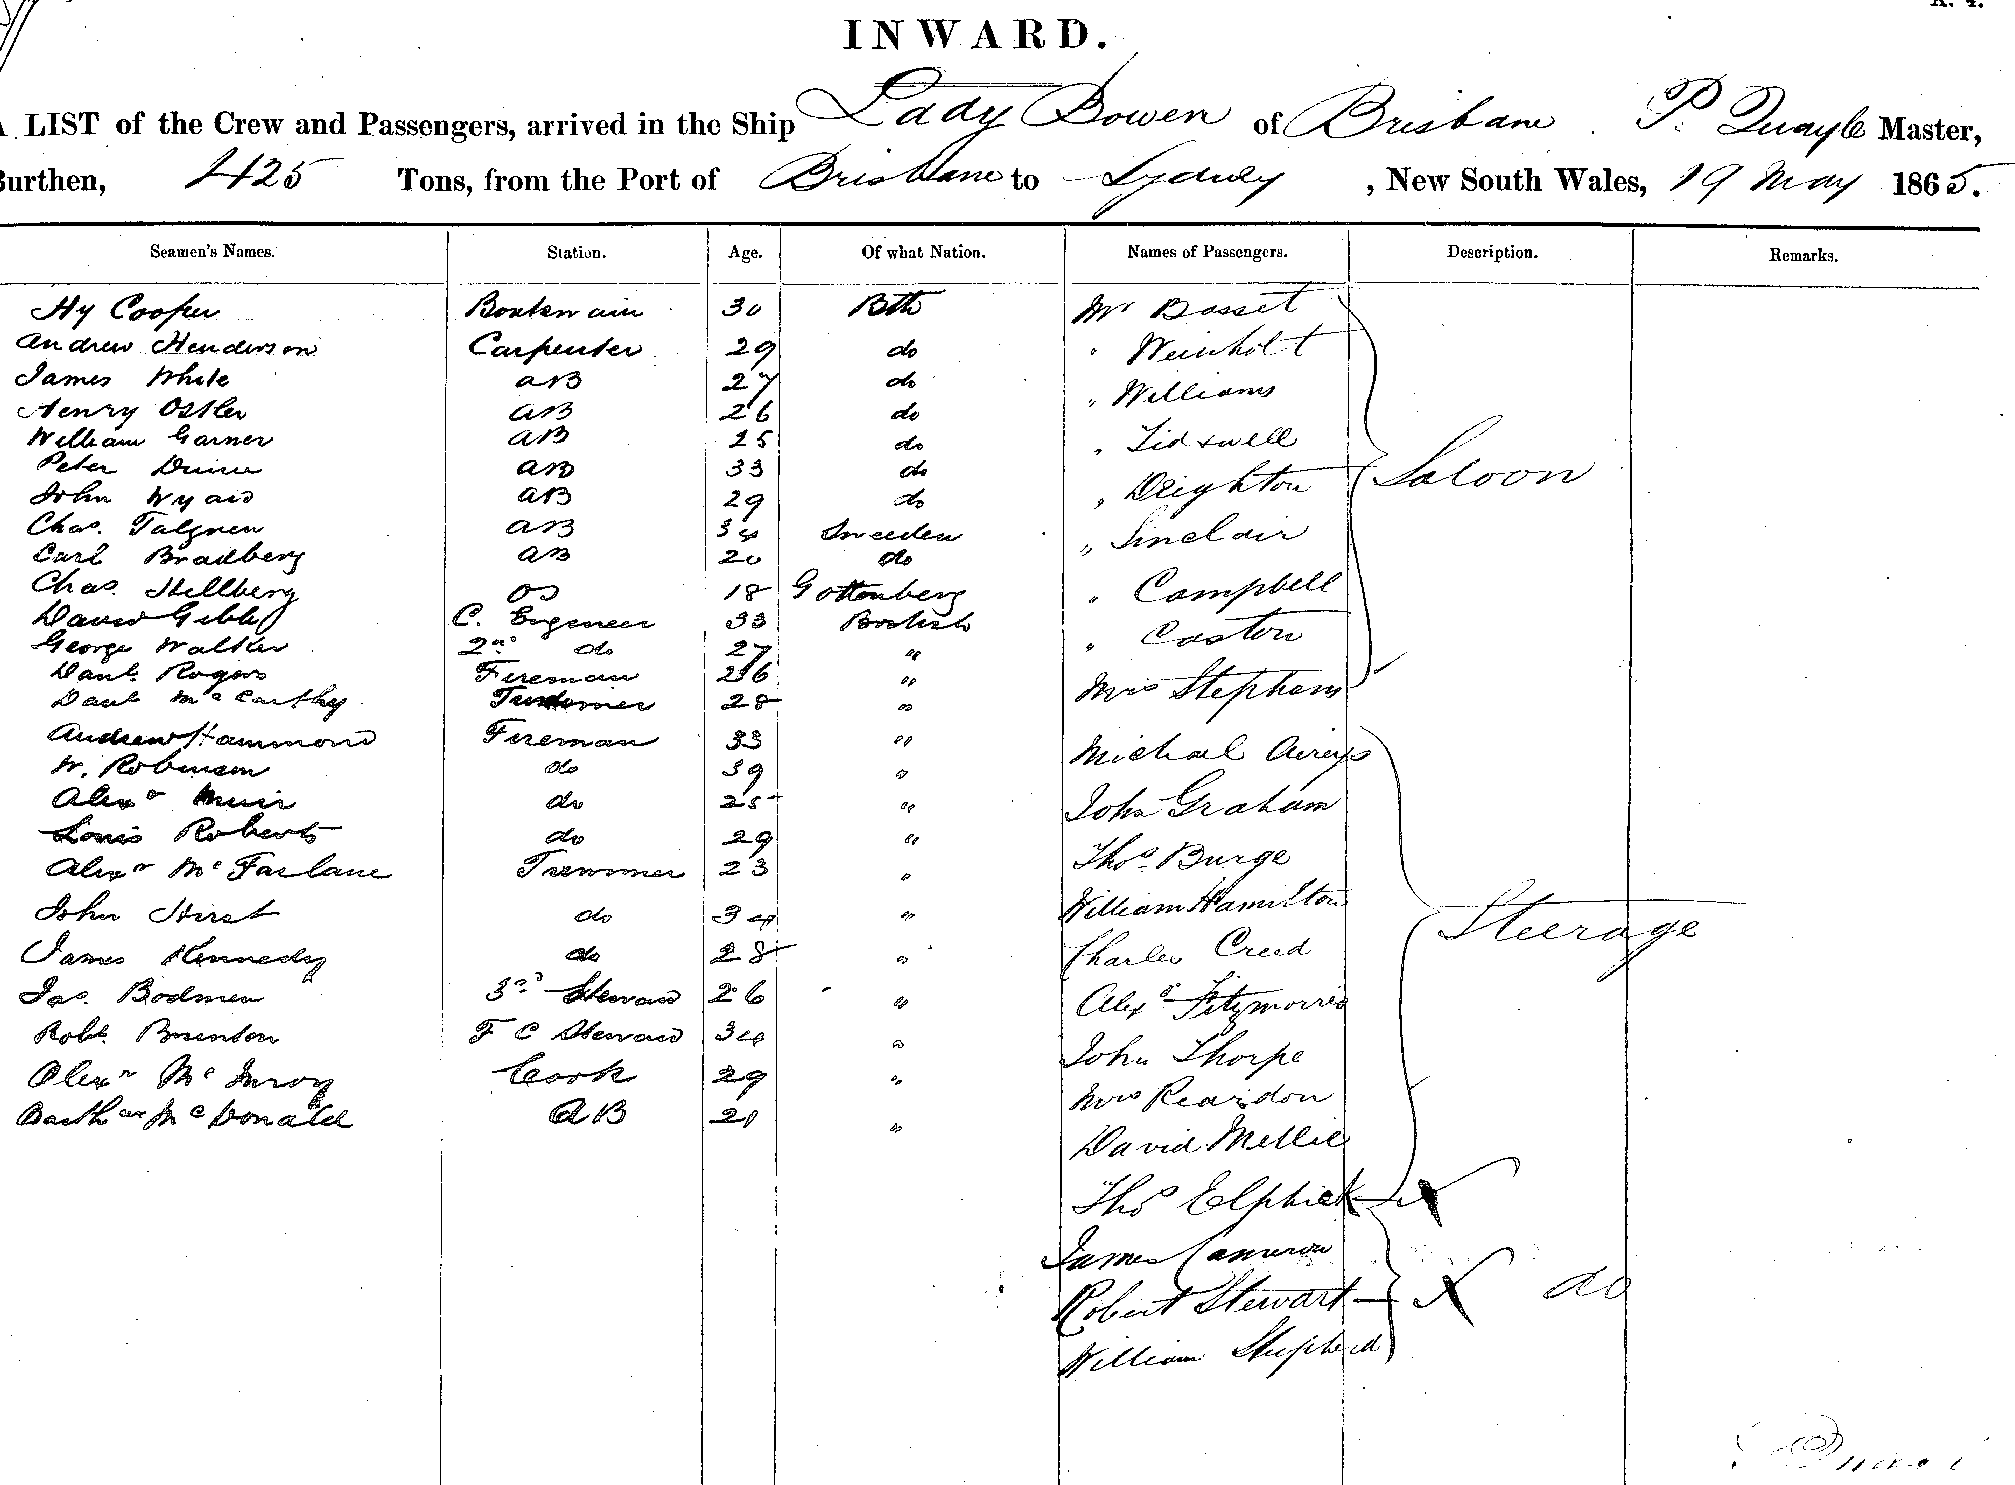 INWARD.
LIST of the Crew and Passengers, arrived in the Ship Lady Bowen of Brisbane P. Quayle Master,
Burthen, 425 Tons, from the Port of Brisbane to Sydney, New South Wales, 19 May 1865.
Seamen's Names. Station. Age. Of what Nation. Names of Passengers. Description. Remarks.
Hy Cooper Boatswain 30 Bth Mr Bosset
Andrew Henderson Carpenter 29 do " Weinholt
James White AB 27 do " Williams
Henry Ostler AB 26 do
William Garner AB 25 do " Tidswell
Peter AB 33 do Saloon
John Wyard AB 29 do " Deighton
Chas. Talgren AB 34 Sweeden " Sinclair
Carl Bradberg AB 20 do
Chas. Hellberg OS 18 Gottenberg " Campbell
David Gibb C. Engeneer 33 British " Caston
George Walker 2nd do 27 "
Danl. Rogers Fireman 26 " Mrs Stephens
Danl McCarthy 28 "
Andrew Hammond Fireman 33 " Michael Aireys
W. Robinson do 39 "
Alexr Muir do 25 " John Graham
Louis Roberts do 29 " Thos Burge
Alexr McFarlane Tremmer 23 " William Hamilton
John Hirst do 34 " Steerage
James Kennedy do 28 " Charles Creed
Jas. Bodmen 3rd Steward 26 " Alexr Fitzmorris
Robt. Brunton F C Steward 34 " John Thorpe
Alexr McInroy Cook 29 " Mrs Reardon
Barthw McDonald AB 21 " David Mellie
Thos Elphick X
James Cameron
Robert Stewart X do
William Shepherd